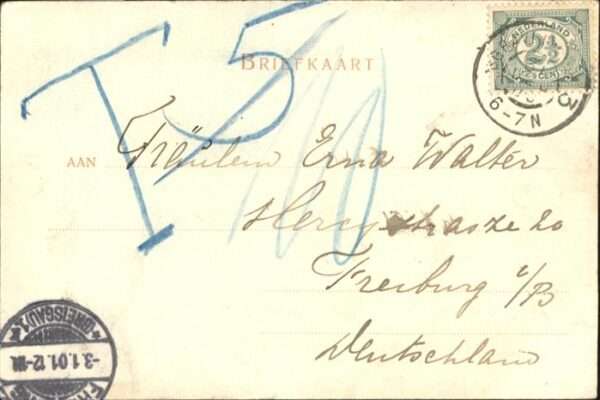 T 5
10
BRIEFKAART
NEDERLAND
2½
CENT
6-7N
AAN Fräulein Erna Walter
Hercystrasze 20
Freiburg i/B
Deutschland
(BREISGAU) 1
-3.1.01.12-